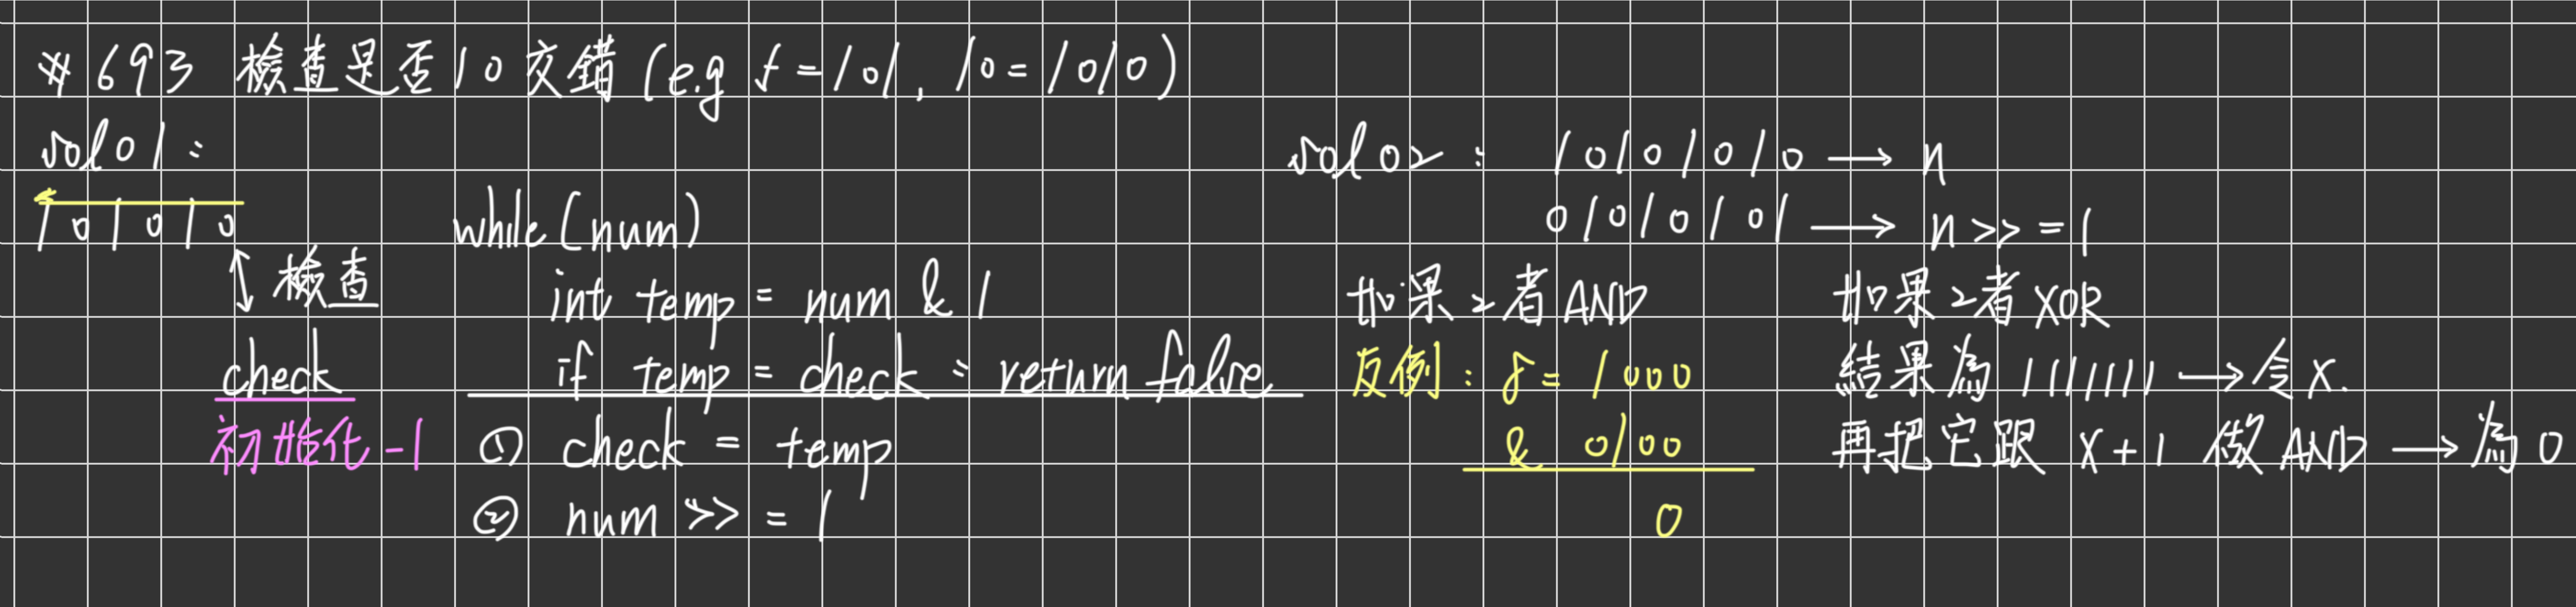 ※ 693 檢查是否 10 交錯 (e.g 5 = 101, 10 = 1010)
sol 01 :
101010
檢查
check
初始化 -1
while (num)
int temp = num & 1
if temp = check : return false
① check = temp
② num >> = 1
sol 02 : 10101010 → n
01010101 → n >> = 1
如果 2者 AND
反例 : 8 = 1000
& 0100
0
如果 2者 XOR
結果為 1111111 → 令 X.
再把它跟 X + 1 做 AND → 為 0